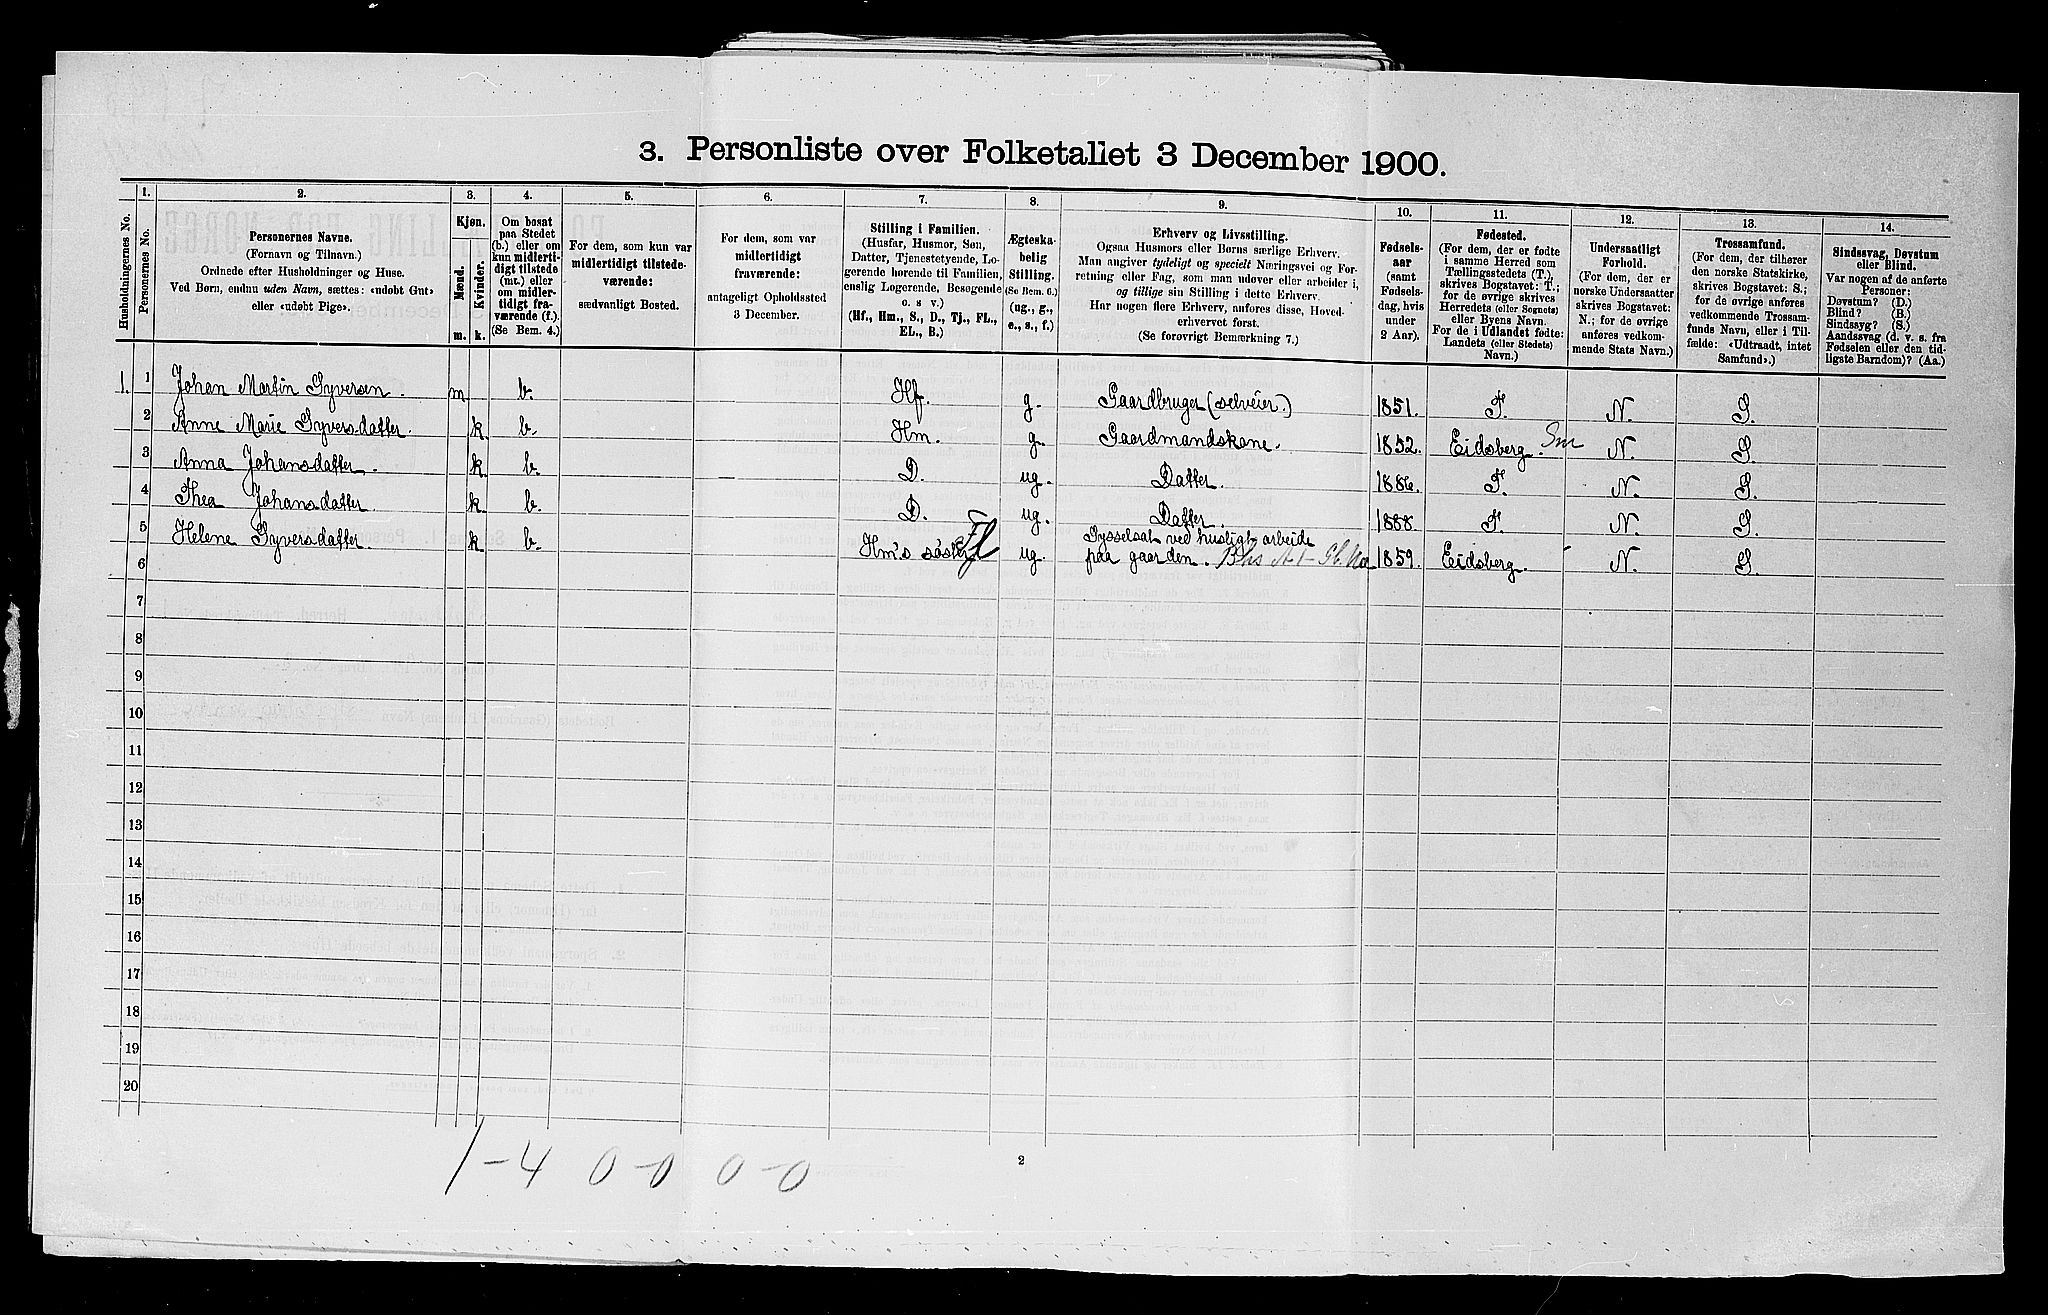 3. Personliste over Folketallet 3 December 1900.
Husholdningernes No.
1.
Personernes No.
2.
Personernes Navne.
(Fornavn og Tilnavn.)
Ordnede efter Husholdninger og Huse.
Ved Børn, endnu uden Navn, sættes: «udøbt Gut»
eller «udøbt Pige».
3.
Kjøn.
Mænd.
Kvinder.
m. k.
4.
Om bosat
paa Stedet
(b.) eller om
kun midlerti-
digt tilstede
(mt.) eller
om midler-
tidigt fra-
værende (f.).
(Se Bem. 4.)
5.
For dem, som kun var
midlertidigt tilstede-
værende:
sædvanligt Bosted.
6.
For dem, som var
midlertidigt
fraværende:
antageligt Opholdssted
3 December.
7.
Stilling i Familien.
(Husfar, Husmor, Søn,
Datter, Tjenestetyende, Lo-
gerende hørende til Familien,
enslig Logerende, Besøgende
o. s v.)
(Hf., Hm., S., D., Tj., FL.,
EL., B.)
8.
Ægteska-
belig
Stilling.
(Se Bem. 6.)
(ug., g.,
e., s., f.)
9.
Erhverv og Livsstilling.
Ogsaa Husmors eller Børns særlige Erhverv.
Man angiver tydeligt og specielt Næringsvei og For-
retning eller Fag, som man udøver eller arbeider i,
og tillige sin Stilling i dette Erhverv.
Har nogen flere Erhverv, anføres disse, Hoved-
erhvervet først.
(Se forøvrigt Bemærkning 7.)
10.
Fødsels-
aar
(samt
Fødsels-
dag, hvis
under
2 Aar).
11.
Fødested.
(For dem, der er fødte
i samme Herred som
Tællingsstedets (T.),
skrives Bogstavet: T.;
for de øvrige skrives
Herredets (eller Sognets)
eller Byens Navn.
For de i Udlandet fødte:
Landets (eller Stedets)
Navn.)
12.
Undersaatligt
Forhold.
(For dem, der er
norske Undersaatter
skrives Bogstavet:
N.; for de øvrige
anføres vedkom-
mende Stats Navn.)
13.
Trossamfund.
(For dem, der tilhører
den norske Statskirke,
skrives Bogstavet: S.;
for de øvrige anføres
vedkommende Trossam-
funds Navn, eller i Til-
fælde: «Udtraadt, intet
Samfund».)
14.
Sindssvag, Døvstum
eller Blind.
Var nogen af de anførte
Personer:
Døvstum? (D.)
Blind? (B.)
Sindssyg? (S.)
Aandssvag (d. v. s. fra
Fødselen eller den tid-
ligste Barndom)? (Aa.)
1. 1 Johan Martin Syversen. m b. Hf. g. Gaardbruger (selveier.) 1851. T. N. S.
2 Anne Marie Syversdatter. k b. Hm. g. Gaardmandskone. 1852. Eidsberg. Sm N. S.
3 Anna Johansdatter. k b. D. ug. Datter. 1886. T. N. S.
4 Thea Johansdatter k b. D. ug. Datter. 1888. T. N. S.
5 Helene Syversdatter. k b. Hm's søster Fl ug. Sysselsat ved husligt arbeide
paa gaarden. 1859. Eidsberg. N. S.
6
7
8
9
10
11
12
13
14
15
16
17
18
19
20
1-4 0-0 0-0
2